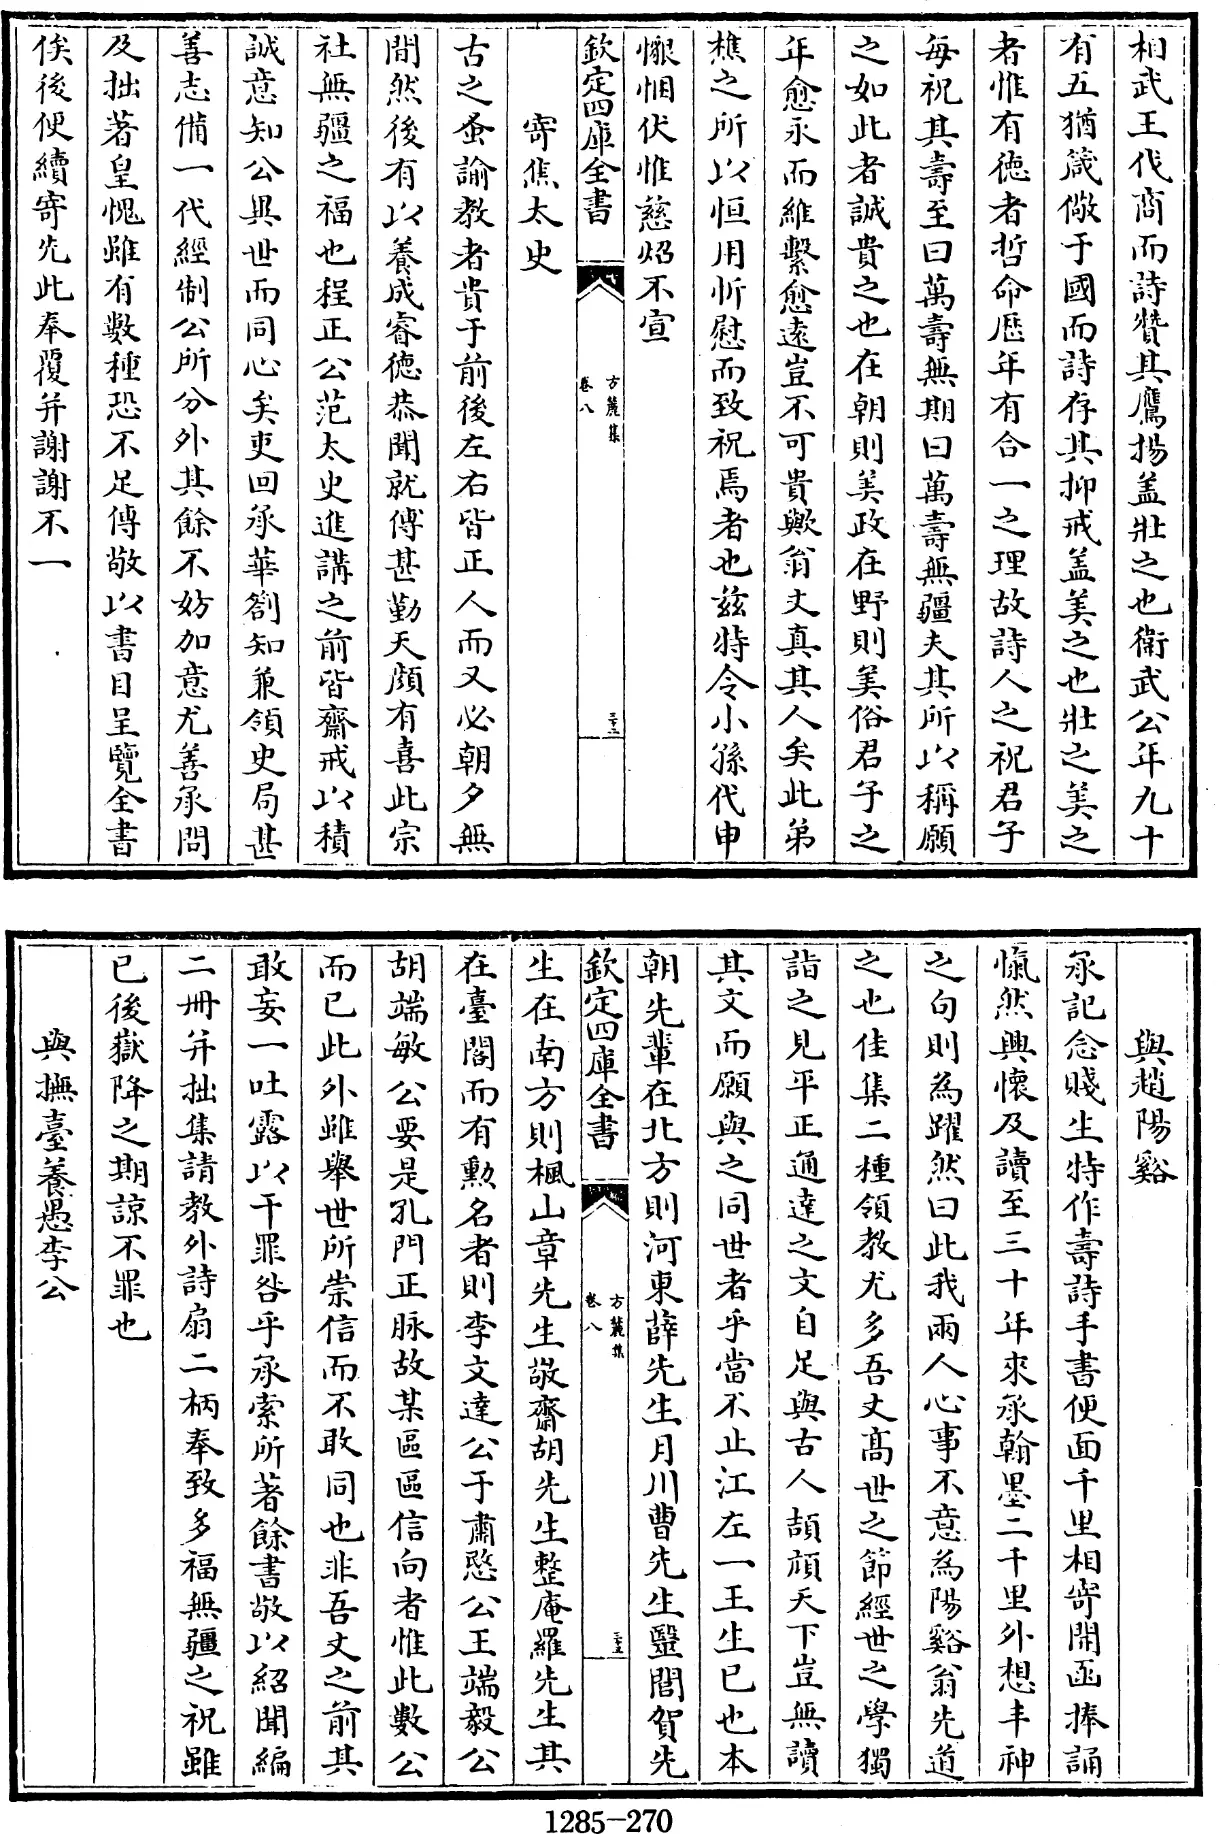 相武王伐商而詩贊其鷹揚盖壯之也衛武公年九十
有五猶箴儆于國而詩存其抑戒盖美之也壯之美之
者惟有德者哲命歴年有合一之理故詩人之祝君子
每祝其壽至曰萬壽無期曰萬壽無疆夫其所以稱願
之如此者誠貴之也在朝則美政在野則美俗君子之
年愈永而維繫愈逺豈不可貴歟翁丈真其人矣此弟
樵之所以恒用忻慰而致祝焉者也兹特令小孫代申
懇悃伏惟慈炤不宣
欽定四庫全書
方麓集
卷八
寄焦太史
古之蚤諭教者貴于前後左右皆正人而又必朝夕無
間然後有以養成睿德恭聞就傅甚勤天顔有喜此宗
社無疆之福也程正公范太史進講之前皆齋戒以積
誠意知公異世而同心矣吏回承華劄知兼領史局甚
善志備一代經制公所分外其餘不妨加意尤善承問
及拙著皇愧雖有數種恐不足傳敬以書目呈覽全書
俟後便續寄先此奉覆并謝謝不一
與趙陽谿
承記念賤生特作壽詩手書便面千里相寄開函捧誦
愾然興懷及讀至三十年來承翰墨二千里外想丰神
之句則為躍然曰此我兩人心事不意為陽谿翁先道
之也佳集二種領教尤多吾丈髙世之節經世之學獨
詣之見平正通達之文自足與古人頡頏天下豈無讀
其文而願與之同世者乎當不止江左一王生已也本
朝先輩在北方則河東薛先生月川曹先生毉閭賀先
欽定四庫全書
方麓集
卷八
生在南方則楓山章先生敬齋胡先生整庵羅先生其
在臺閣而有勲名者則李文達公于肅愍公王端毅公
胡端敏公要是孔門正脉故某區區信向者惟此數公
而已此外雖舉世所崇信而不敢同也非吾丈之前其
敢妄一吐露以干罪咎乎承索所著餘書敬以紹聞編
二冊并拙集請教外詩扇二柄奉致多福無疆之祝雖
已後嶽降之期諒不罪也
與撫臺養愚李公
1285-270